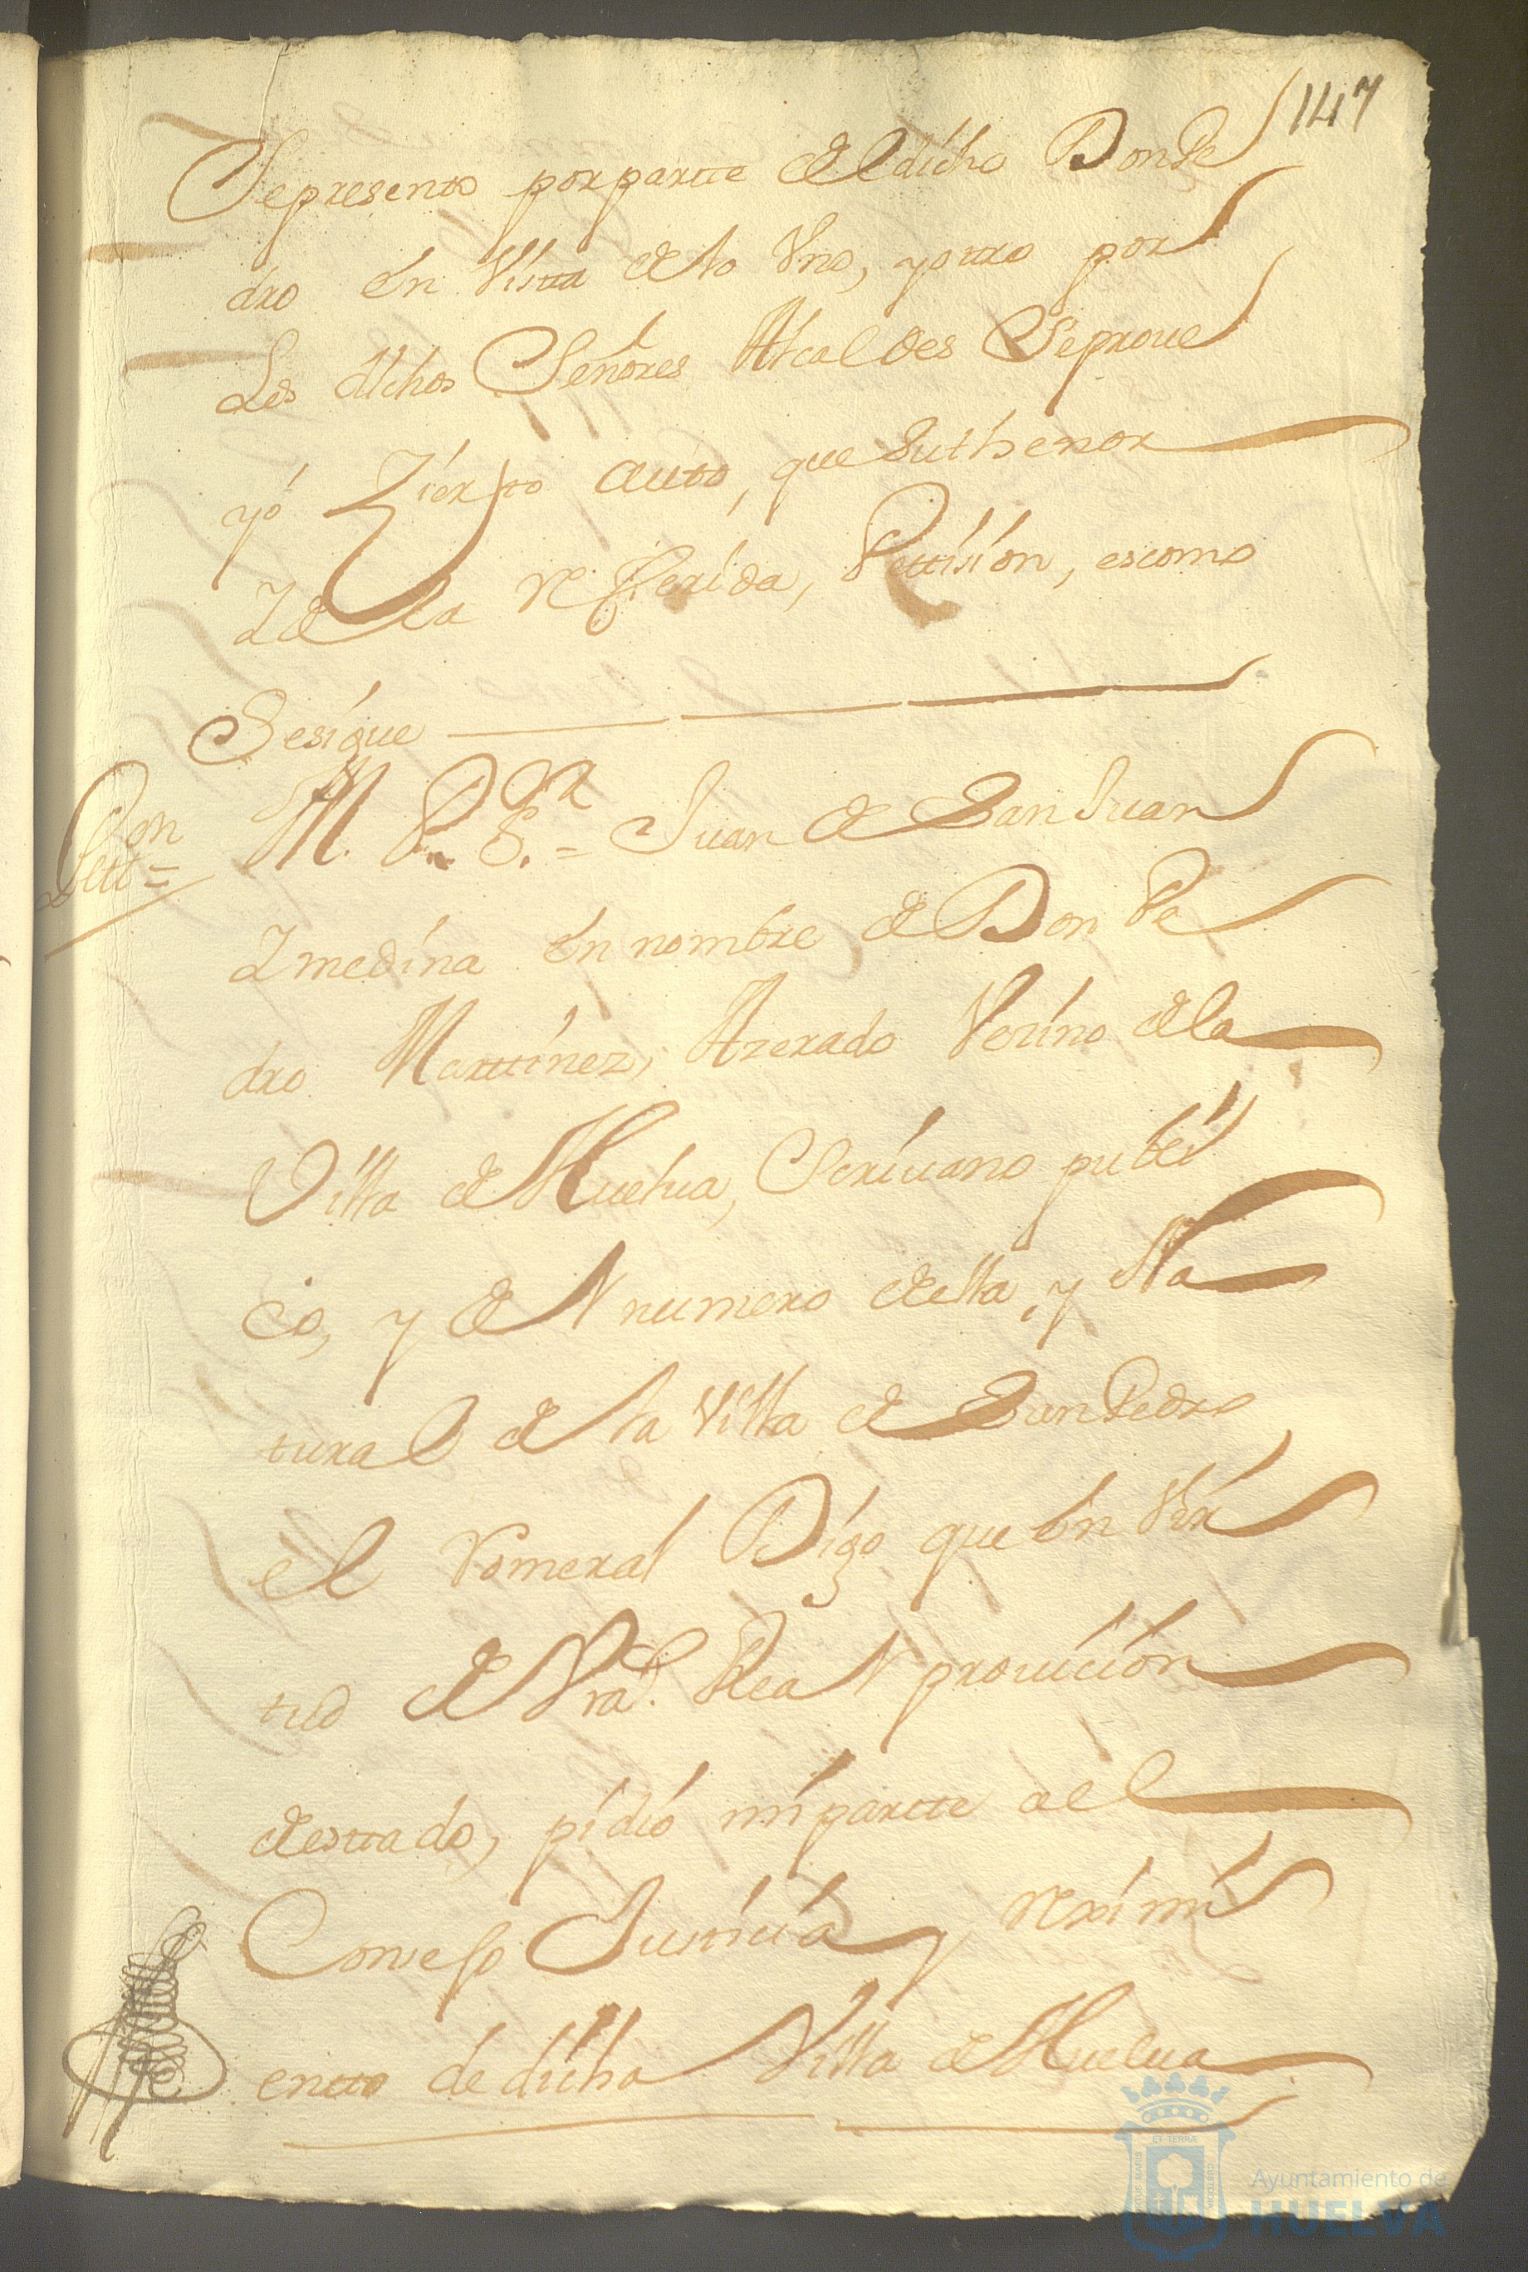 147
Sepresento porpartte del dicho Don Pe
dro en Vistta delo Vno, y otro por
Los dichos Señores Alcaldes Seproue
yó Zierto autto, que Suthenor
Y dela refferida, Pettisión, escomo
Sesigue
Pett.on =
M. P. S.or = Juan de San Juan
Y medina en nombre de Don Pe
dro Marttinez, Azerado Vezino dela
Villa de Huelua, Escriuano publi
co, y del numero della, y Na
tural de la Villa de San Pedro
el Romeral Digo que en Vir
tud de Vra. Real prouición
desttado, pidió mi partte ael
Consejo Justicia y reximi
entto de dicha Villa de Huelua
Ayuntamiento de
HUELVA